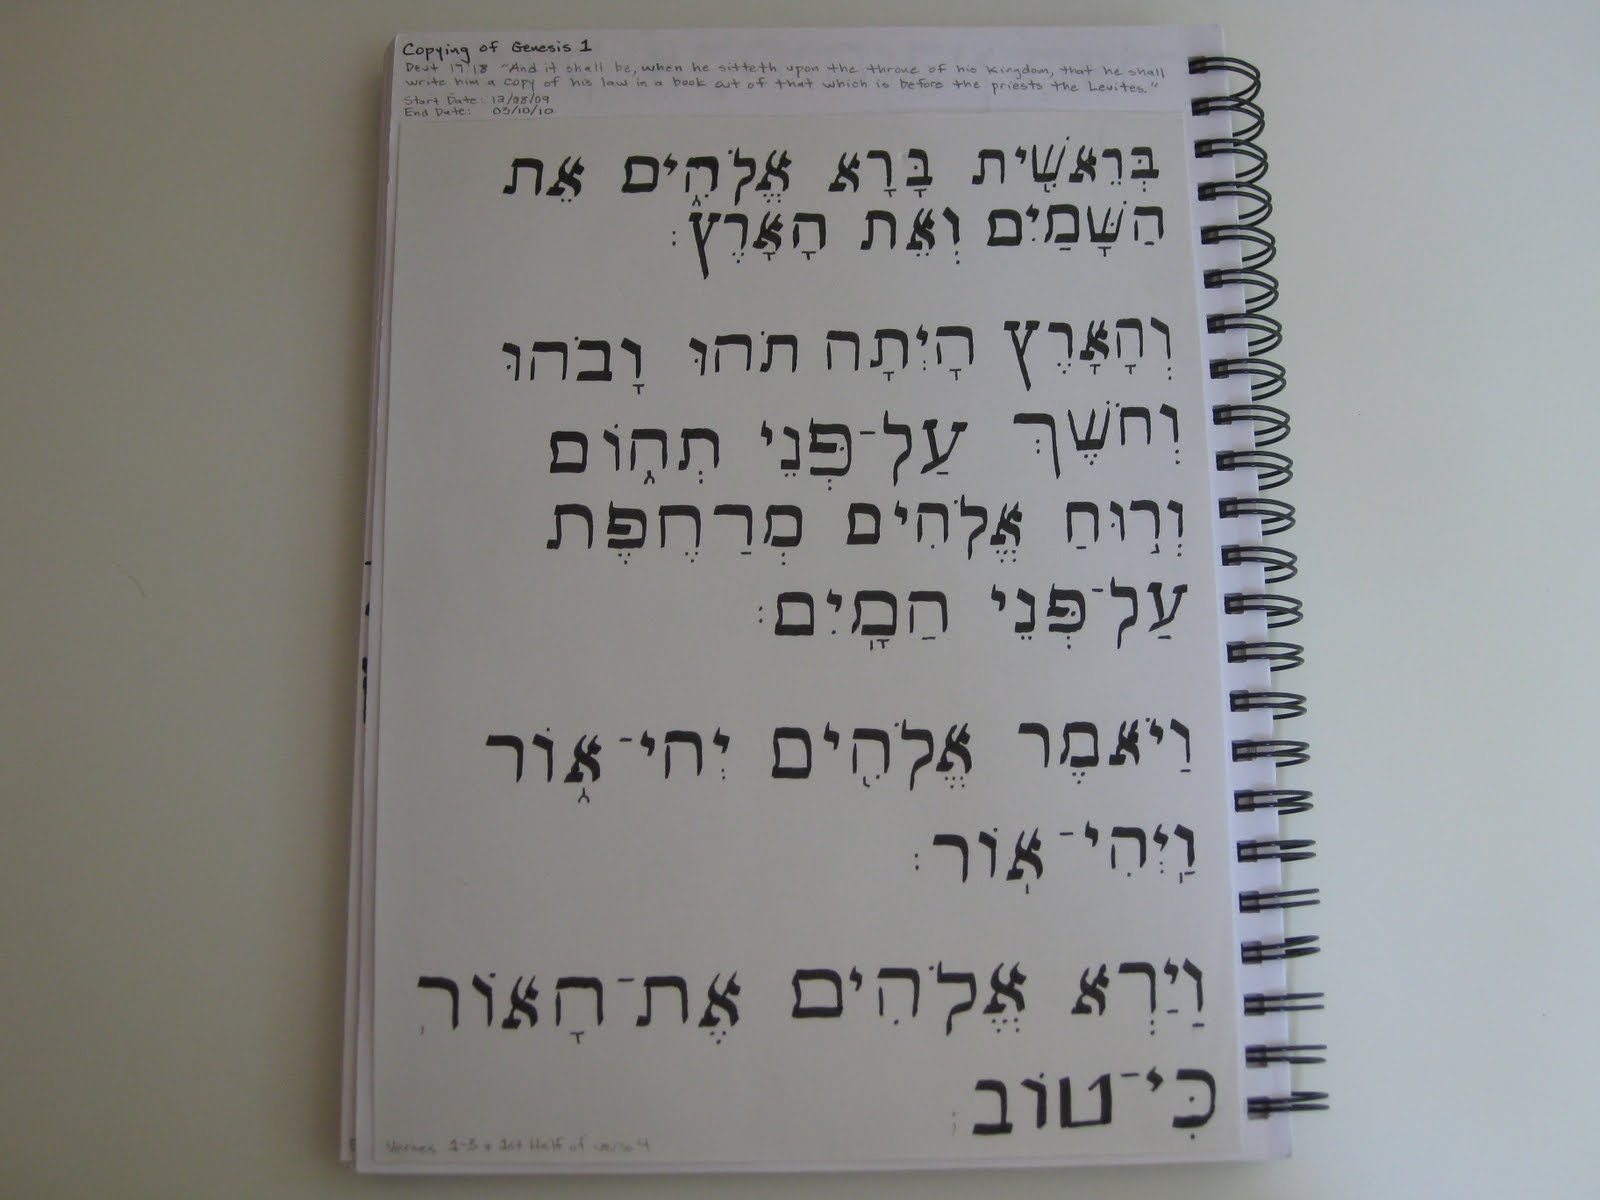 Copying of Genesis 1
Deut 17:18 "And it shall be, when he sitteth upon the throne of his kingdom, that he shall
write him a copy of his law in a book out of that which is before the priests the Levites."
Start Date: 12/28/09
End Date: 03/10/10
בְּרֵאשִׁ֖ית בָּרָא אֱלֹהִ֑ים אֵת
הַשָּׁמַיִם וְאֵת הָאָרֶץ׃
וְהָאָרֶץ הָיְתָה תֹהוּ וָבֹהוּ
וְחֹשֶׁךְ עַל־פְּנֵי תְה֑וֹם
וְר֖וּחַ אֱלֹהִים מְרַחֶפֶת
עַל־פְּנֵי הַמָּֽיִם׃
וַיֹּאמֶר אֱלֹהִ֖ים יְהִי־א֑וֹר
וַֽיְהִי־אֽוֹר׃
וַיַּרְא אֱלֹהִים אֶת־הָאוֹר
כִּי־טוֹב
Verses 1-3 + 1st Half of verse 4